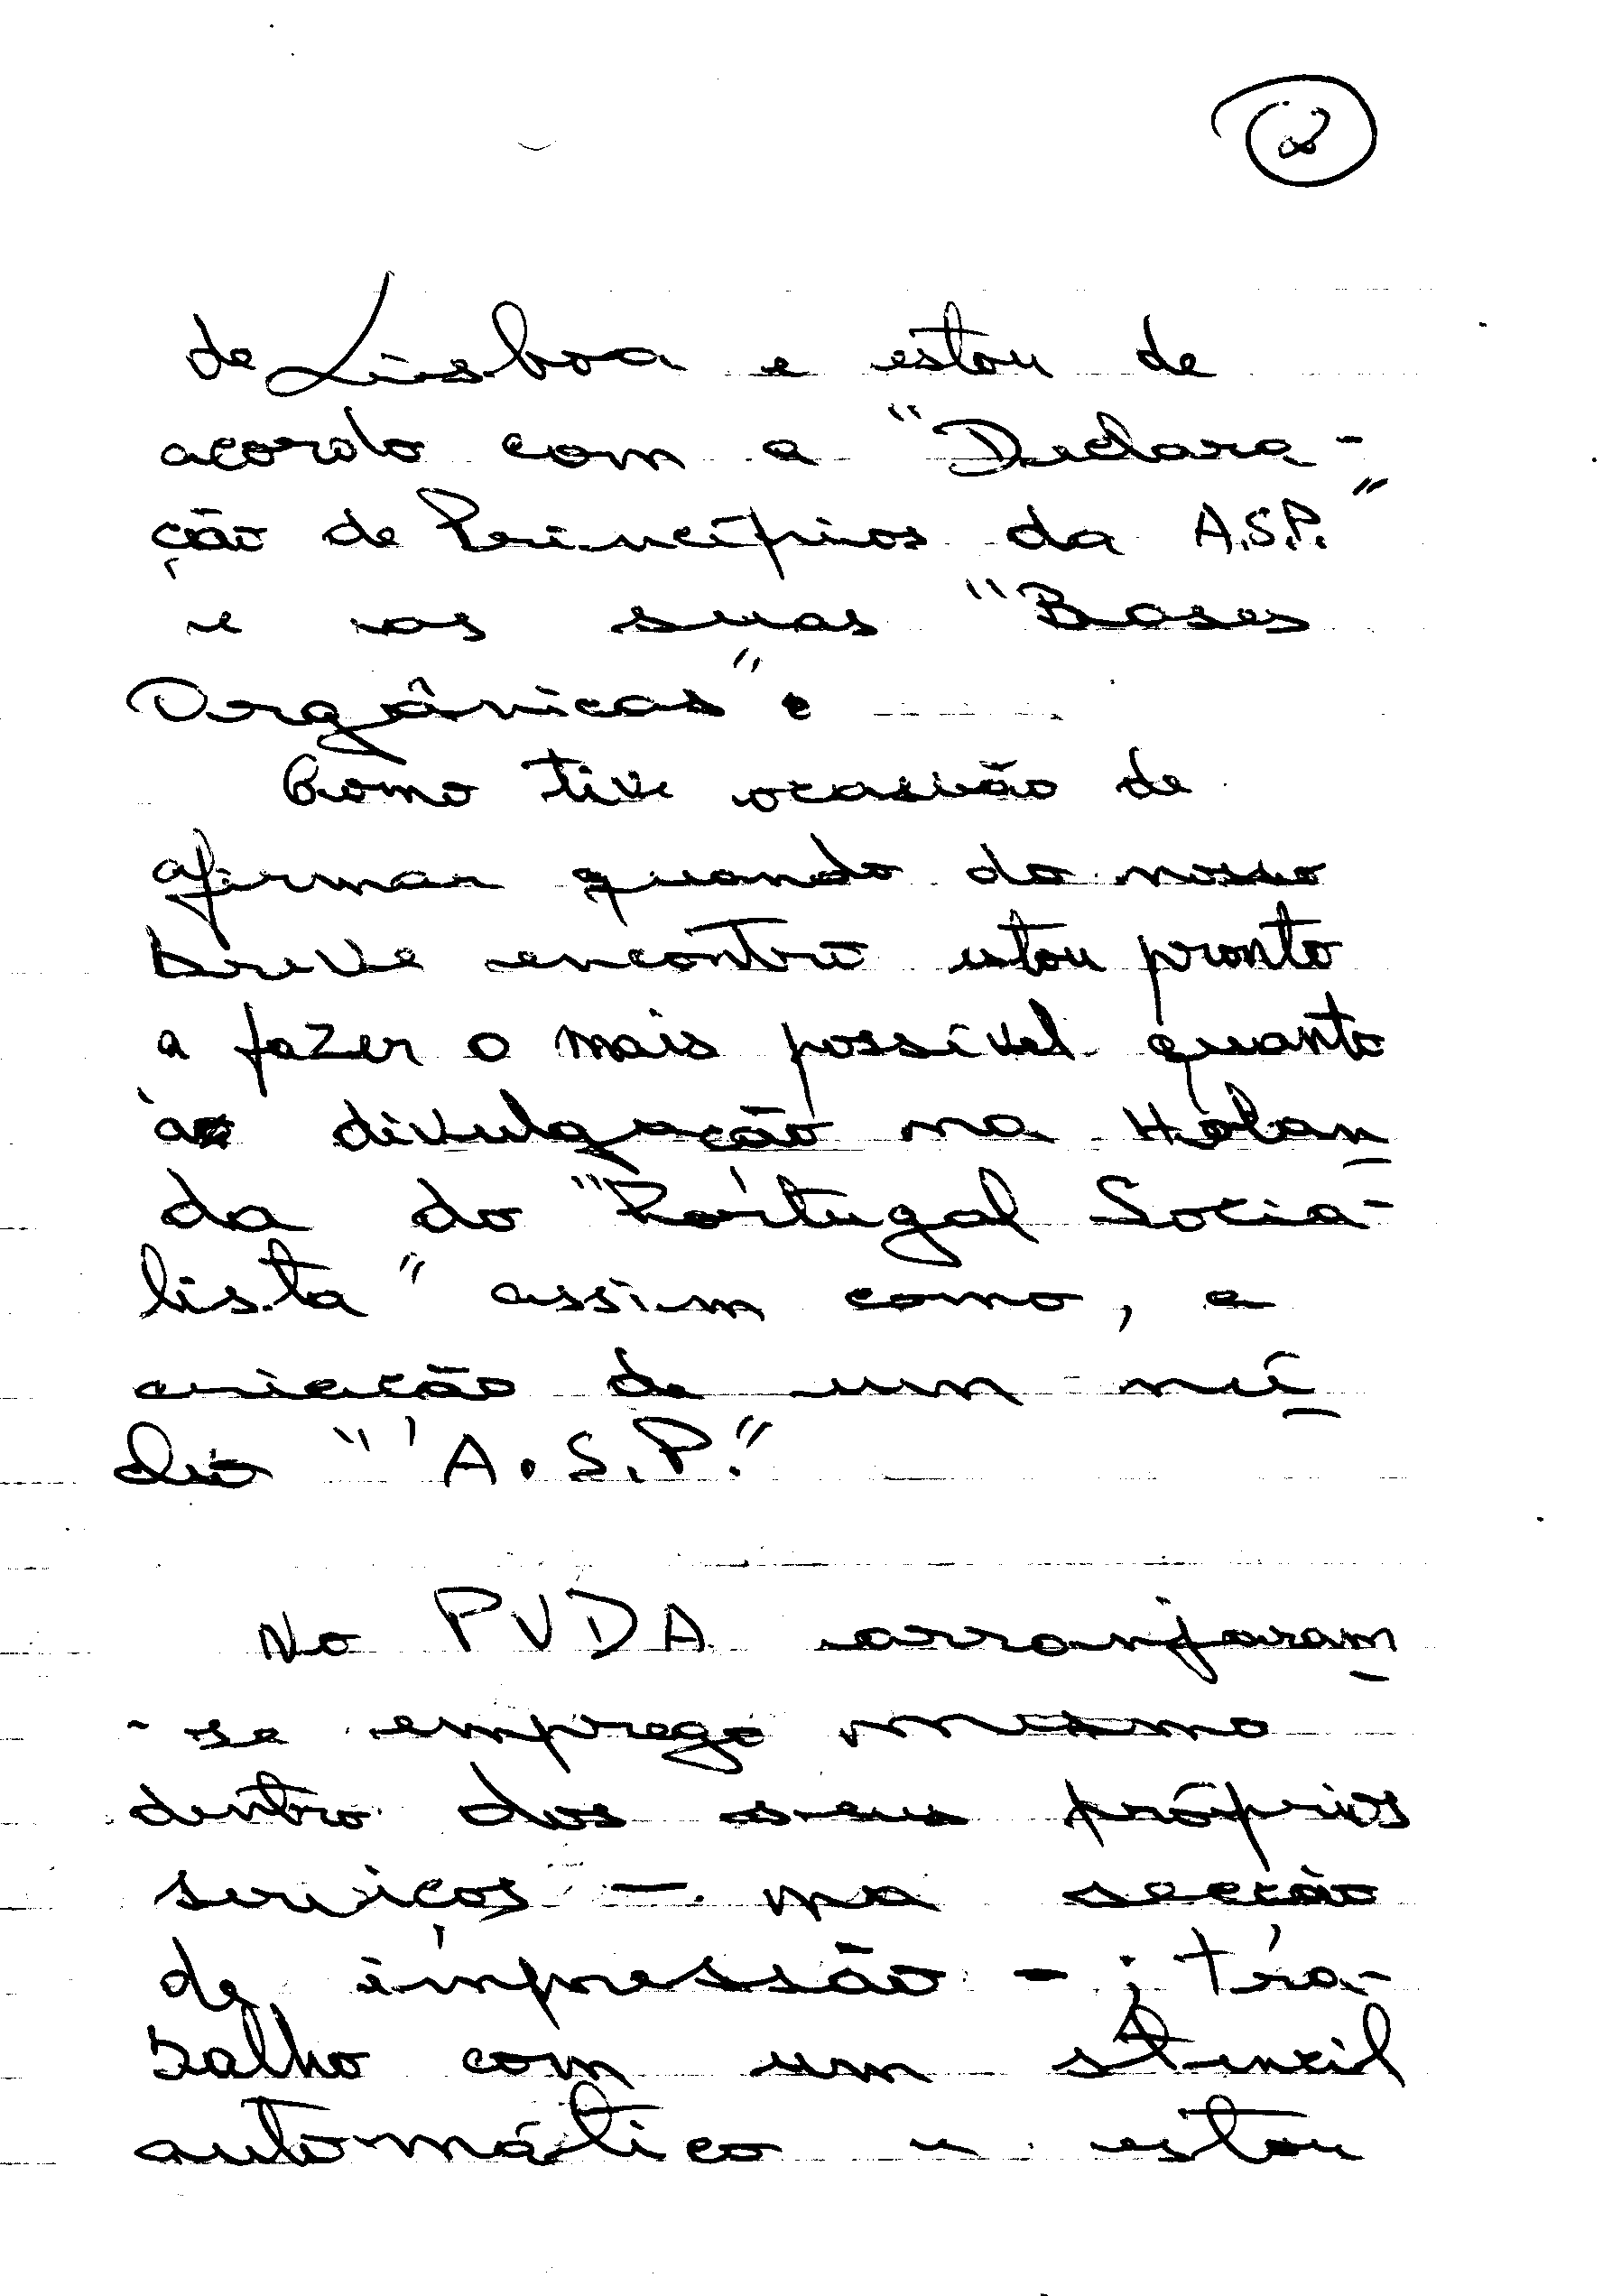 2
de Lisboa e estou de
acordo com a "Declara-
ção de Princípios da A.S.P."
e as suas "Bases
Orgânicas".
Como tive ocasião de
afirmar quando do nosso
breve encontro estou pronto
a fazer o mais possível quanto
à divulgação na Holan
da do "Portugal Socia-
lista" assim como, a
criação de um nú
cleo "A.S.P."
No PVDA arranjaram
-se emprego mesmo
dentro dos seus próprios
serviços - na secção
de impressão - ; tra-
balho com um stencil
automático e estou